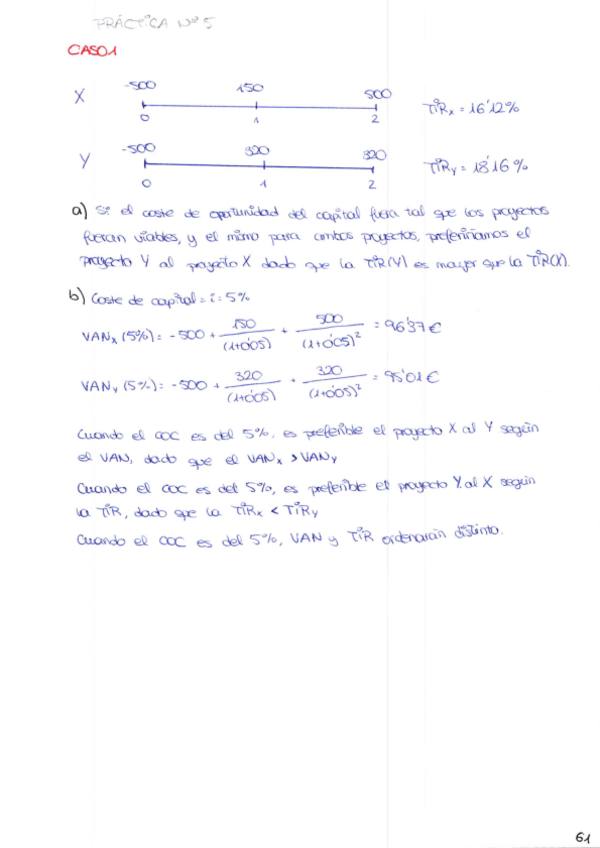 PRÁCTICA Nº 5
CASO 1
X -500 150 500 TIRx = 16'12%
0 1 2
Y -500 320 320 TIRy = 18'16%
0 1 2
a) Si el coste de oportunidad del capital fuera tal que los proyectos
fueran viables, y el mismo para ambos proyectos, preferiríamos el
proyecto Y al proyecto X dado que la TIR(Y) es mayor que la TIR(X).
b) Coste de capital = i = 5%
VANx (5%) = -500 + 150/(1+0'05) + 500/(1+0'05)² = 96'37€
VANy (5%) = -500 + 320/(1+0'05) + 320/(1+0'05)² = 95'01€
Cuando el COC es del 5%, es preferible el proyecto X al Y según
el VAN, dado que el VANx > VANy
Cuando el COC es del 5%, es preferible el proyecto Y al X según
la TIR, dado que la TIRx < TIRy
Cuando el COC es del 5%, VAN y TIR ordenarán distinto.
61